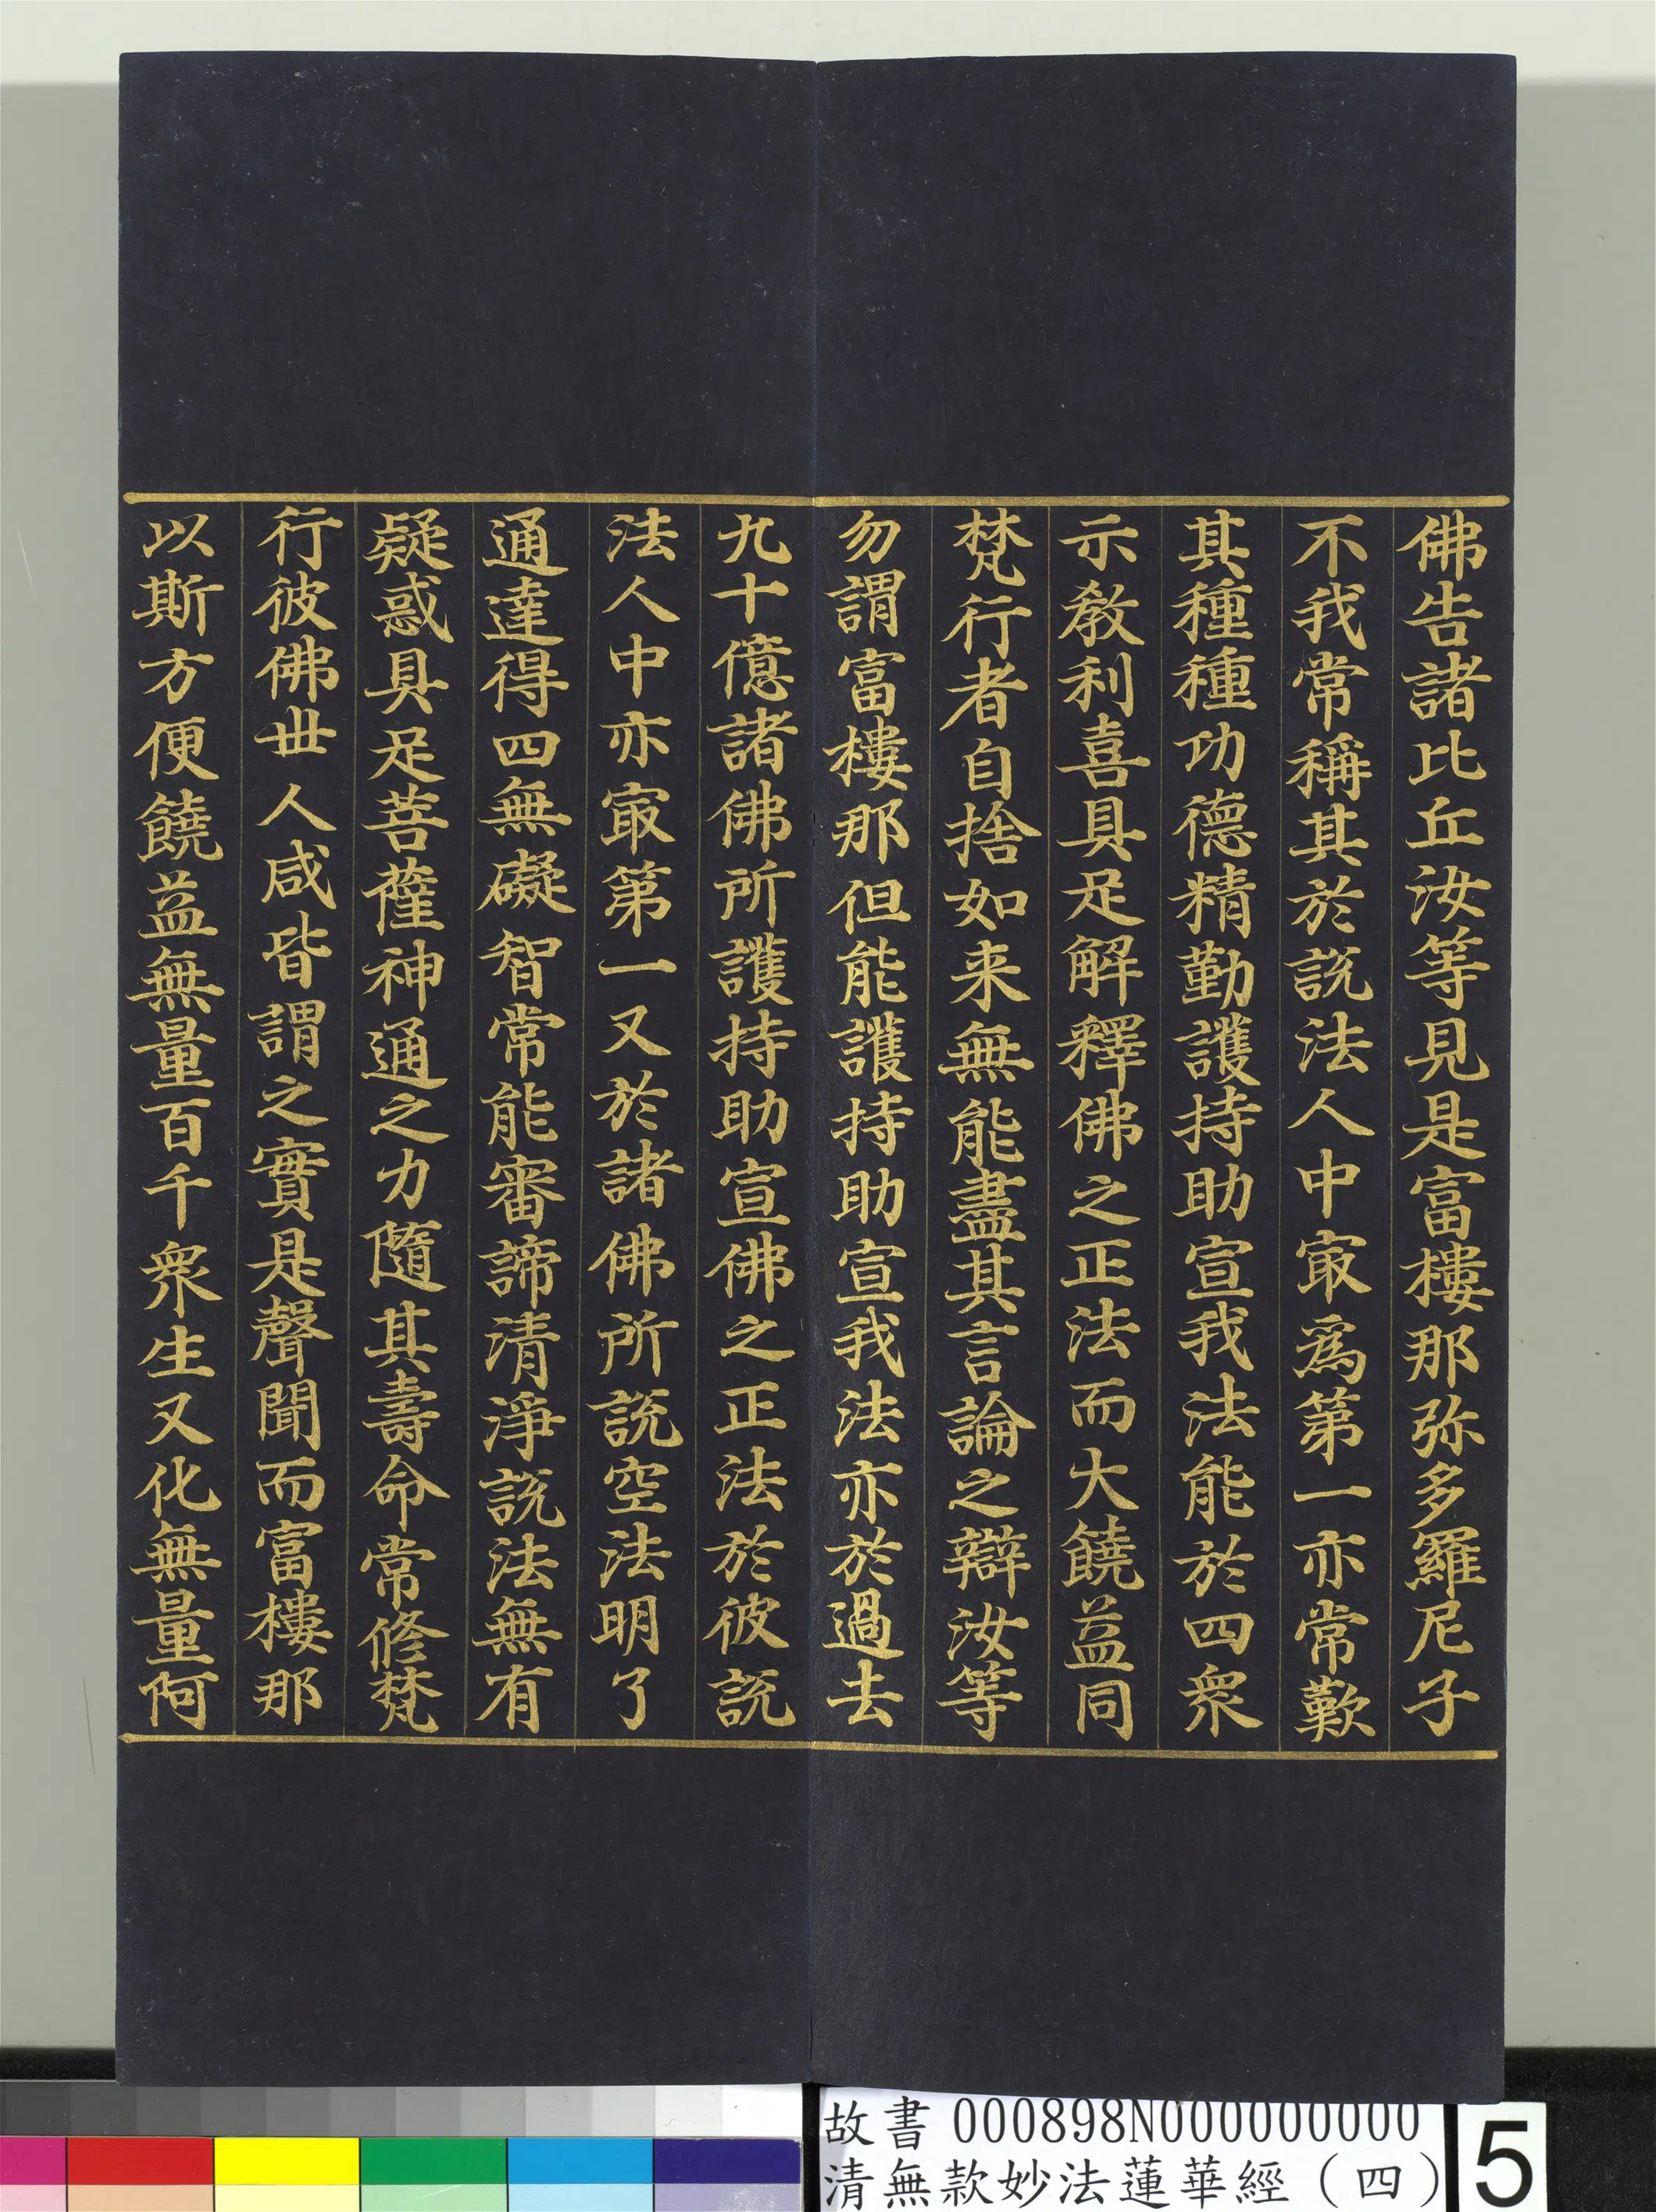 佛告諸比丘汝等見是富樓那弥多羅尼子
不我常稱其於說法人中冣為第一亦常歎
其種種功德精勤護持助宣我法能於四衆
示教利喜具足解釋佛之正法而大饒益同
梵行者自捨如来無能盡其言論之辯汝等
勿謂富樓那但能護持助宣我法亦於過去
九十億諸佛所護持助宣佛之正法於彼說
法人中亦冣第一又於諸佛所說空法明了
通達得四無礙智常能審諦清淨說法無有
疑惑具足菩薩神通之力隨其壽命常修梵
行彼佛世人咸皆謂之實是聲聞而富樓那
以斯方便饒益無量百千衆生又化無量阿
故書 000898N000000000
清無款妙法蓮華經（四）
5